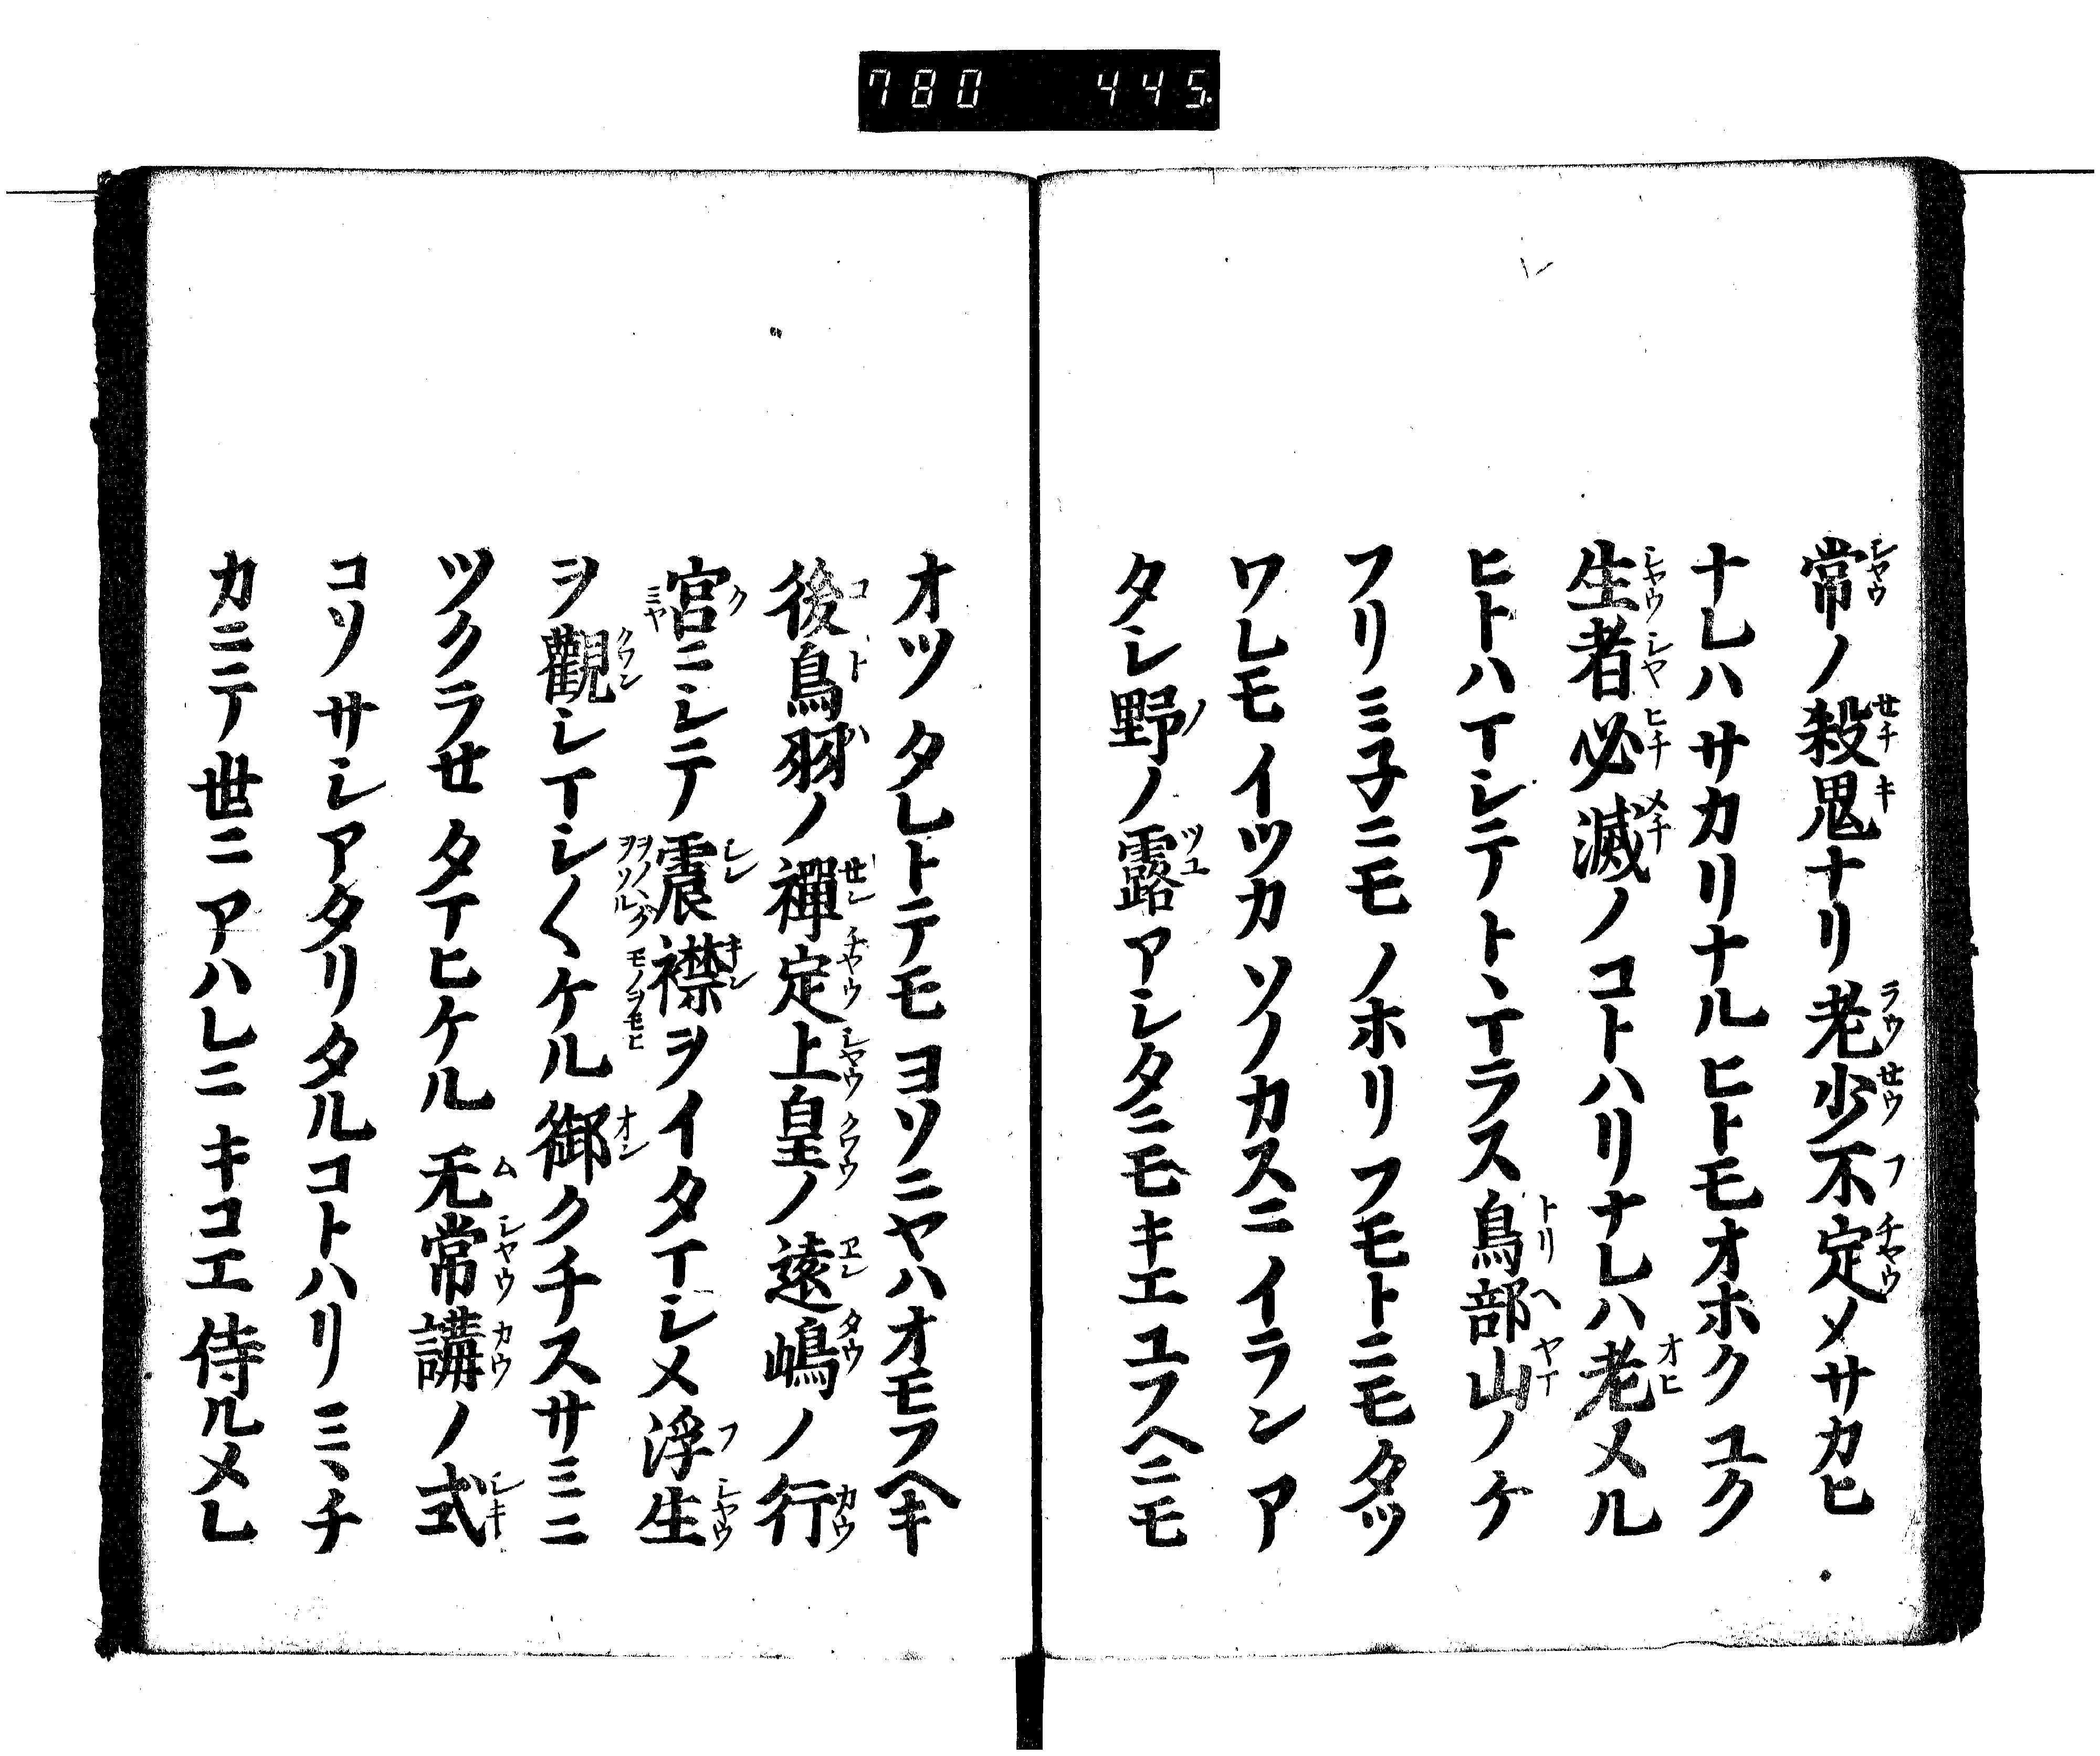 780 445
常ノ殺鬼ナリ老少不定ノサカヒ
ナレハサカリナルヒトモオホクユク
生者必滅ノコトハリナレハ老タル
ヒトハイシテトヽイラス鳥部山ノケ
フリミ子ニモノホリフモトニモタツ
ワレモイツカソノカスニイランア
タシ野ノ露アシタニモキエユフヘニモ
オツタレトテモヨソニヤハオモフヘキ
後鳥羽ノ禪定上皇ノ遠嶋ノ行
宮ニシテ震襟ヲイタイシメ浮生
ヲ觀シイシ〱ケル御クチスサミニ
ツクラせタイヒケル无常講ノ式
コソサシアタリタルコトハリミヽチ
カニテ世ニアハレニキコエ侍ルメレ